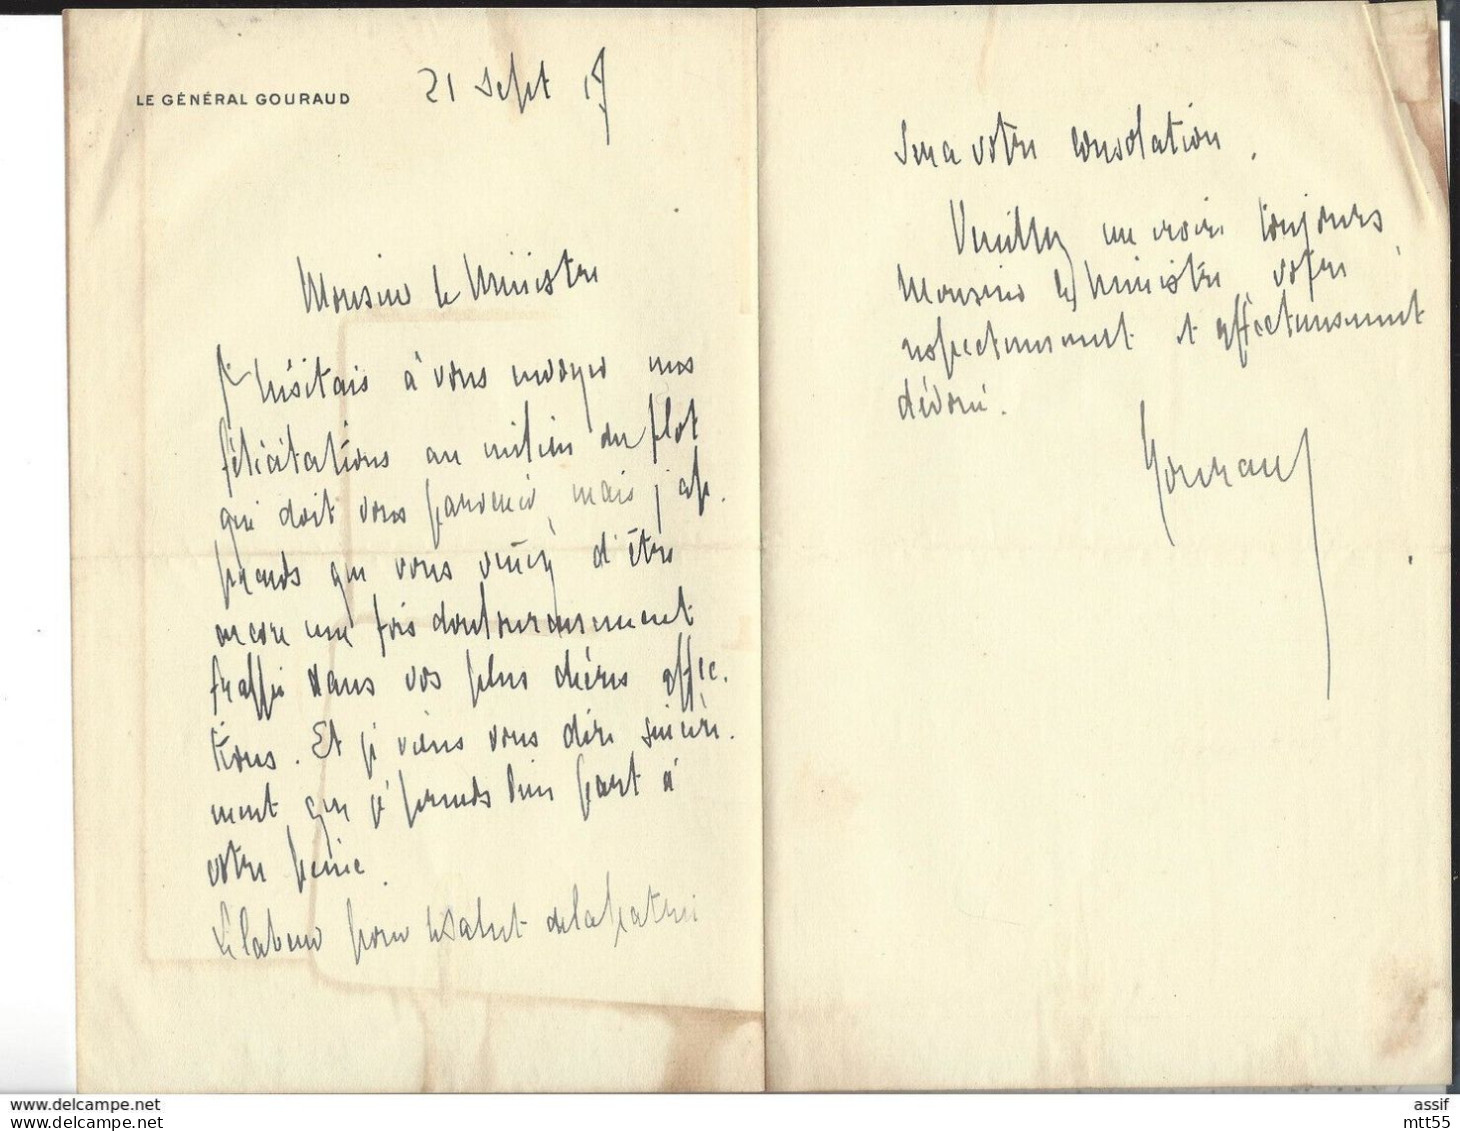 LE GÉNÉRAL GOURAUD
21 Sept 17
Monsieur le Ministre
J'hésitais à vous envoyer mes
félicitations au milieu du flot
qui doit vous parvenir, mais j'ap-
prends que vous venez d'être
encore une fois douloureusement
frappé dans vos plus chères affec-
tions. Et je viens vous dire sincère-
ment que je prends bien part à
votre peine.
Le labeur pour le Salut de la patrie
sera votre consolation.
Veuillez me croire toujours,
Monsieur le Ministre, votre
respectueusement et affectueusement
dévoué.
Gouraud
assif
mtt55
©www.delcampe.net
©www.delcampe.net